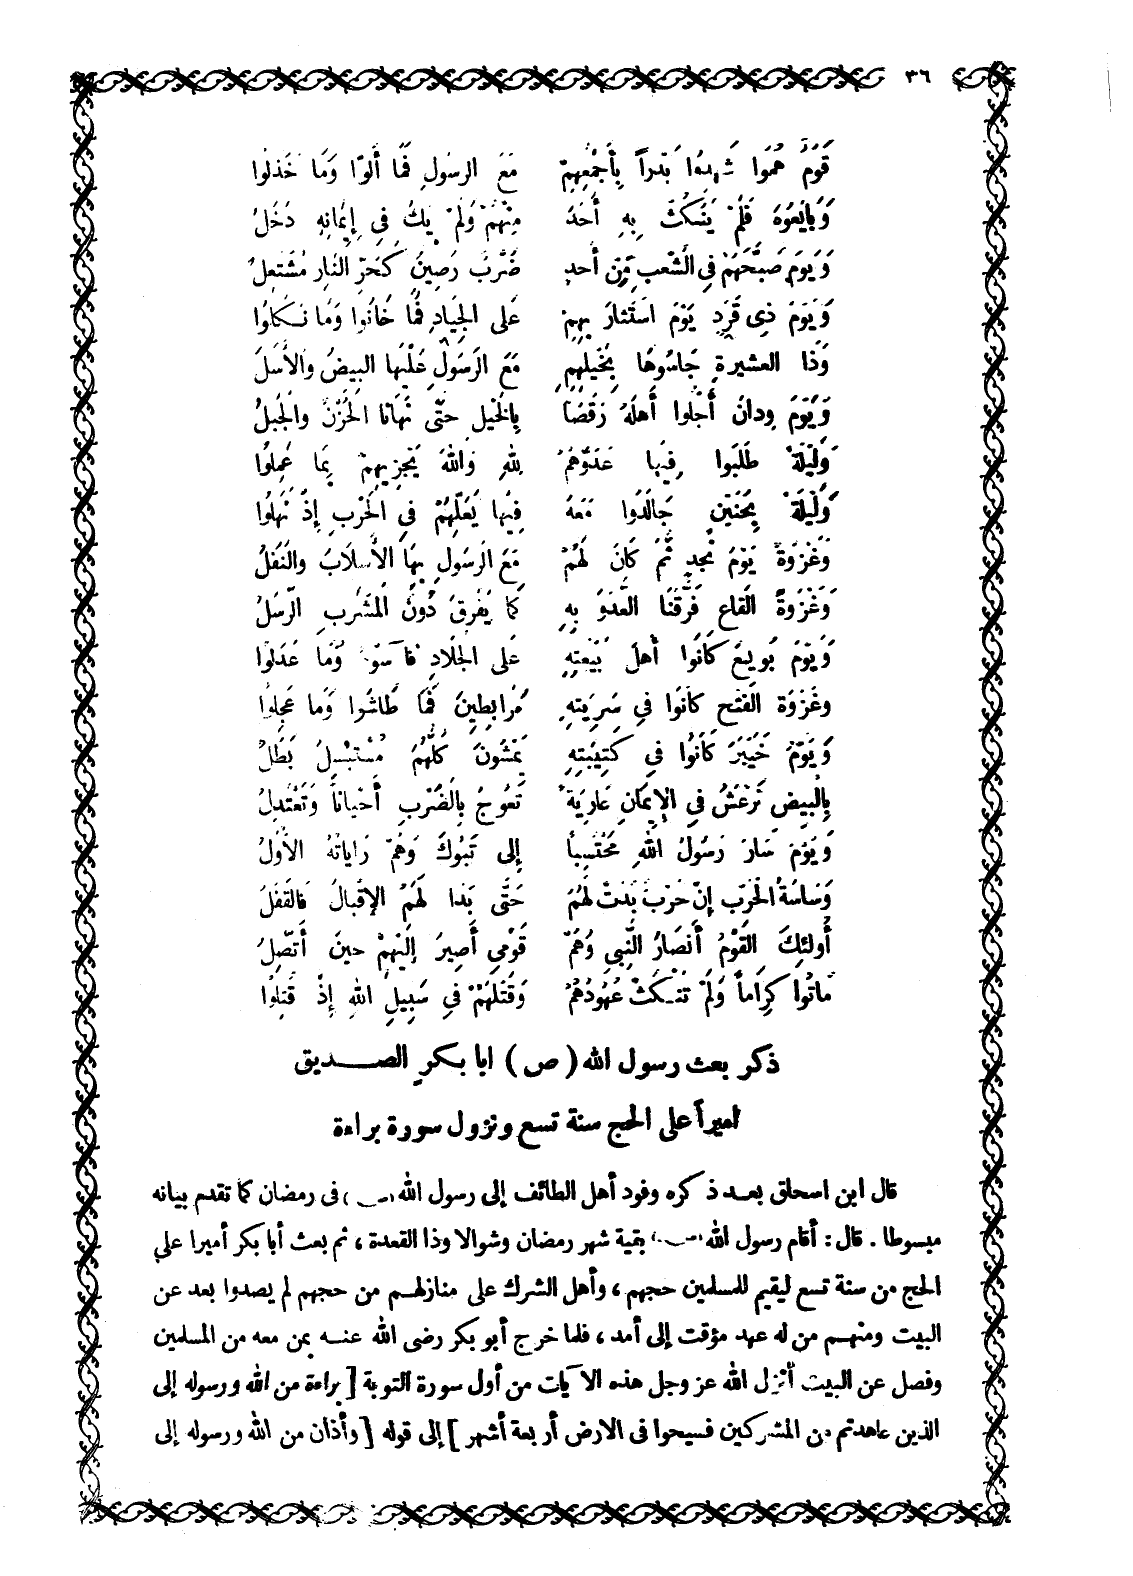 ٣٦
قَوْمٌ هُمُوا شَهِدُوا بَدْراً بِأَجْمَعِهِمْ مَعَ الرسُولِ فَمَا أَلَوْا وَمَا خَذَلُوا
وَبَايَعُوهُ فَلَمْ يَنْكُثْ بِهِ أَحَدٌ مِنْهُمْ وَلَمْ يَكُ فِي إِيمَانِهِ دَخَلُ
وَيَوْمَ صَبَّحَهُمْ فِي الشّعْبِ مِنْ أُحدٍ ضَرْبٌ رَصِينٌ كَحَرِّ النَّارِ مُشْتَعِلُ
وَيَوْمَ ذِي قَرَدٍ يَوْمَ اسْتَثَارَ بِهِمْ عَلى الجِيَادِ فَمَا خَانُوا وَمَا نَكَلُوا
وَذَا العَشِيرةِ جَاسُوهَا بِخَيْلِهِمِ مَعَ الرَسُولِ عَلَيْها البيضُ والأَسَلُ
وَيَوْمَ ودانَ أَجْلوا أَهلَهُ رَقَصَا بِالخَيلِ حتَّى نَهَانَا الحُزْنُ والجَبلُ
وَلَيْلَةً طَلَبوا فِيها عَدُوَّهُمُ لِلهِ وَاللهُ يَجْزِيهِمْ بِمَا عَمِلُوا
وَلَيْلَةً بِحُنَيْنٍ جَالَدُوا مَعَهُ فِيْها يَعُلّهمُ في الحَرْبِ إذْ نَهَلُوا
وَغَزْوَةً يَوْمَ نجدٍ ثُمّ كَانَ لَهُمْ مَعَ الرَسُولِ بِهَا الأَسلابُ والنَفَلُ
وَغَزْوَةَ القَاعِ فَرَّقْنَا العَدُوّ بِهِ كَما يُفْرقُ دُونَ المَشْرَبِ الرّسَلُ
وَيَوْمَ بُويِعَ كَانُوا أَهلَ بَيْعَتِهِ عَلى الجلَادِ فآسَوْهُ وَمَا عَدَلُوا
وغَزْوَةَ الفَتْحِ كانُوا في سَرِيَتِهِ مُرَابِطِينَ فَمَا طَاشُوا وَما عَجِلُوا
وَيَوْمَ خَيْبَرَ كَانُوا في كَتِيبَتِهِ يَمْشُونَ كُلُّهُمُ مُسْتَبْسِلٌ بَطَلُ
بِالبِيضِ تَرْعَشُ في الإيمَانِ عَارِيَةً تَعُوجُ بِالضَرْبِ أَحْيَاناً وَتَعْتَدِلُ
وَيَوْمَ سَارَ رَسُولُ اللهِ مُحْتَسِباً إلى تَبُوكَ وَهُمْ رَايَاتُهُ الأُوَلُ
وَسَاسَةُ الحَرْبِ إنْ حَرْبٌ بَدَتْ لَهُمُ حَتَّى بَدَا لَهُمُ الإِقْبَالُ فَالقَفَلُ
أُولئِكَ القَوْمُ أَنْصَارُ النَّبِي وَهُمْ قَوْمِي أَصِيرُ إِلَيْهِمْ حينَ أَتَّصِلُ
مَاتُوا كِرَاماً وَلَمْ تنْكَثْ عُهُودُهُمُ وَقَتلهُمْ في سَبِيلِ اللهِ إذْ قُتِلُوا
ذكر بعث رسول الله (ص) ابا بكر الصــديق
اميراً على الحج سنة تسع ونزول سورة براءة
قال ابن اسحاق بعد ذكره وفود أهل الطائف إلى رسول الله (ص) فى رمضان كما تقدم بيانه
مبسوطا . قال : أقام رسول الله (ص) بقية شهر رمضان وشوالا وذا القعدة ، ثم بعث أبا بكر أميرا على
الحج من سنة تسع ليقيم للمسلمين حجهم ، وأهل الشرك على منازلهم من حجهم لم يصدوا بعد عن
البيت ومنهم من له عهد مؤقت إلى أمد ، فلما خرج أبو بكر رضى الله عنه بمن معه من المسلمين
وفصل عن البيت أنزل الله عز وجل هذه الآيات من أول سورة التوبة [ براءة من الله ورسوله إلى
الذين عاهدتم من المشركين فسيحوا فى الارض أربعة أشهر ] إلى قوله [ وأذان من الله ورسوله إلى